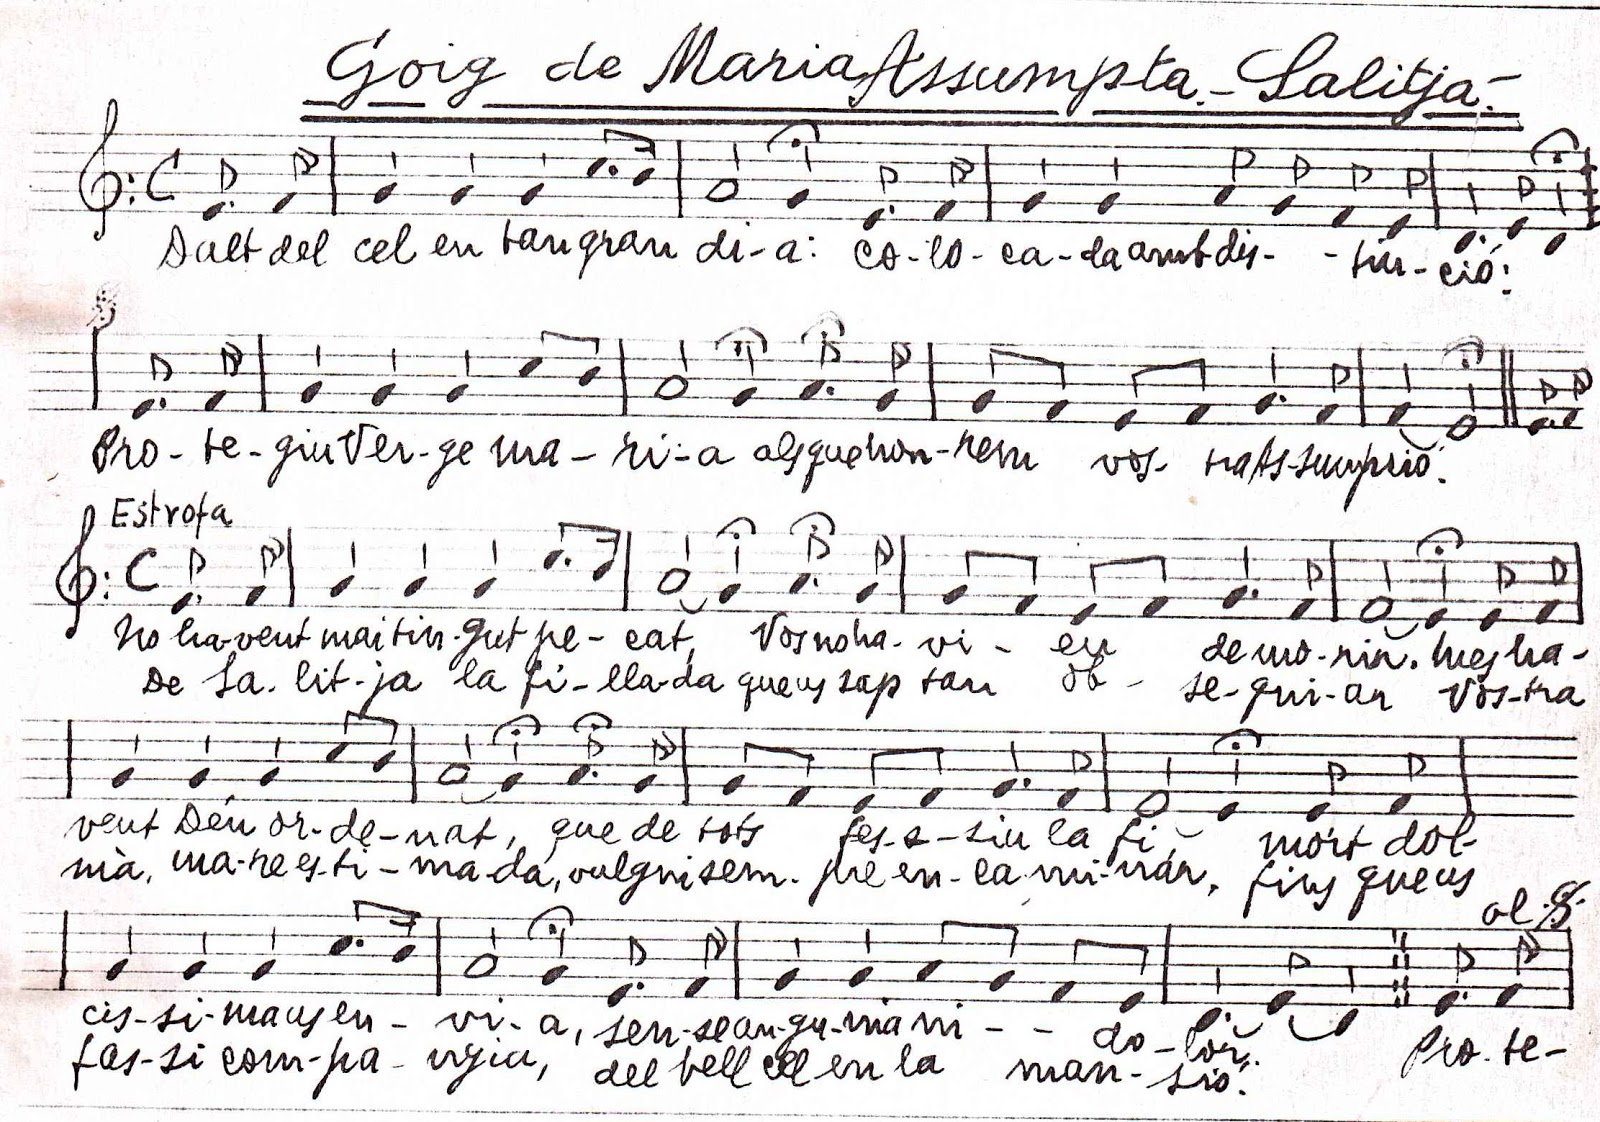 Goig de Maria Assumpta.- Salitja.-
Dalt del cel en tan gran di-a: co-lo-ca-da amb dis- -tin-ció:
Pro-te-giu Ver-ge ma-ri-a als que hon-rem vos- tra As-sumpció.
Estrofa
No ha-vent mai tin-gut pe-cat, Vos no ha-vi-eu de mo-rir. mes ha-
De Sa-lit-ja la fi-lla-da que us sap tan ob- se-qui-ar Vos-tra
vent Déu or-de-nat, que de tots fes-s-siu la fi, mort dol-
mà, ma-re es-ti-ma-da, vulgui sem-pre en-ca-mi-nar, fins que us
al 𝄋
cis-si-ma us en-vi-a, sen-se an-gú-nia ni - - do-lor. Pro-te-
fas-si com-pa-nyia, del bell cel en la man-sió.